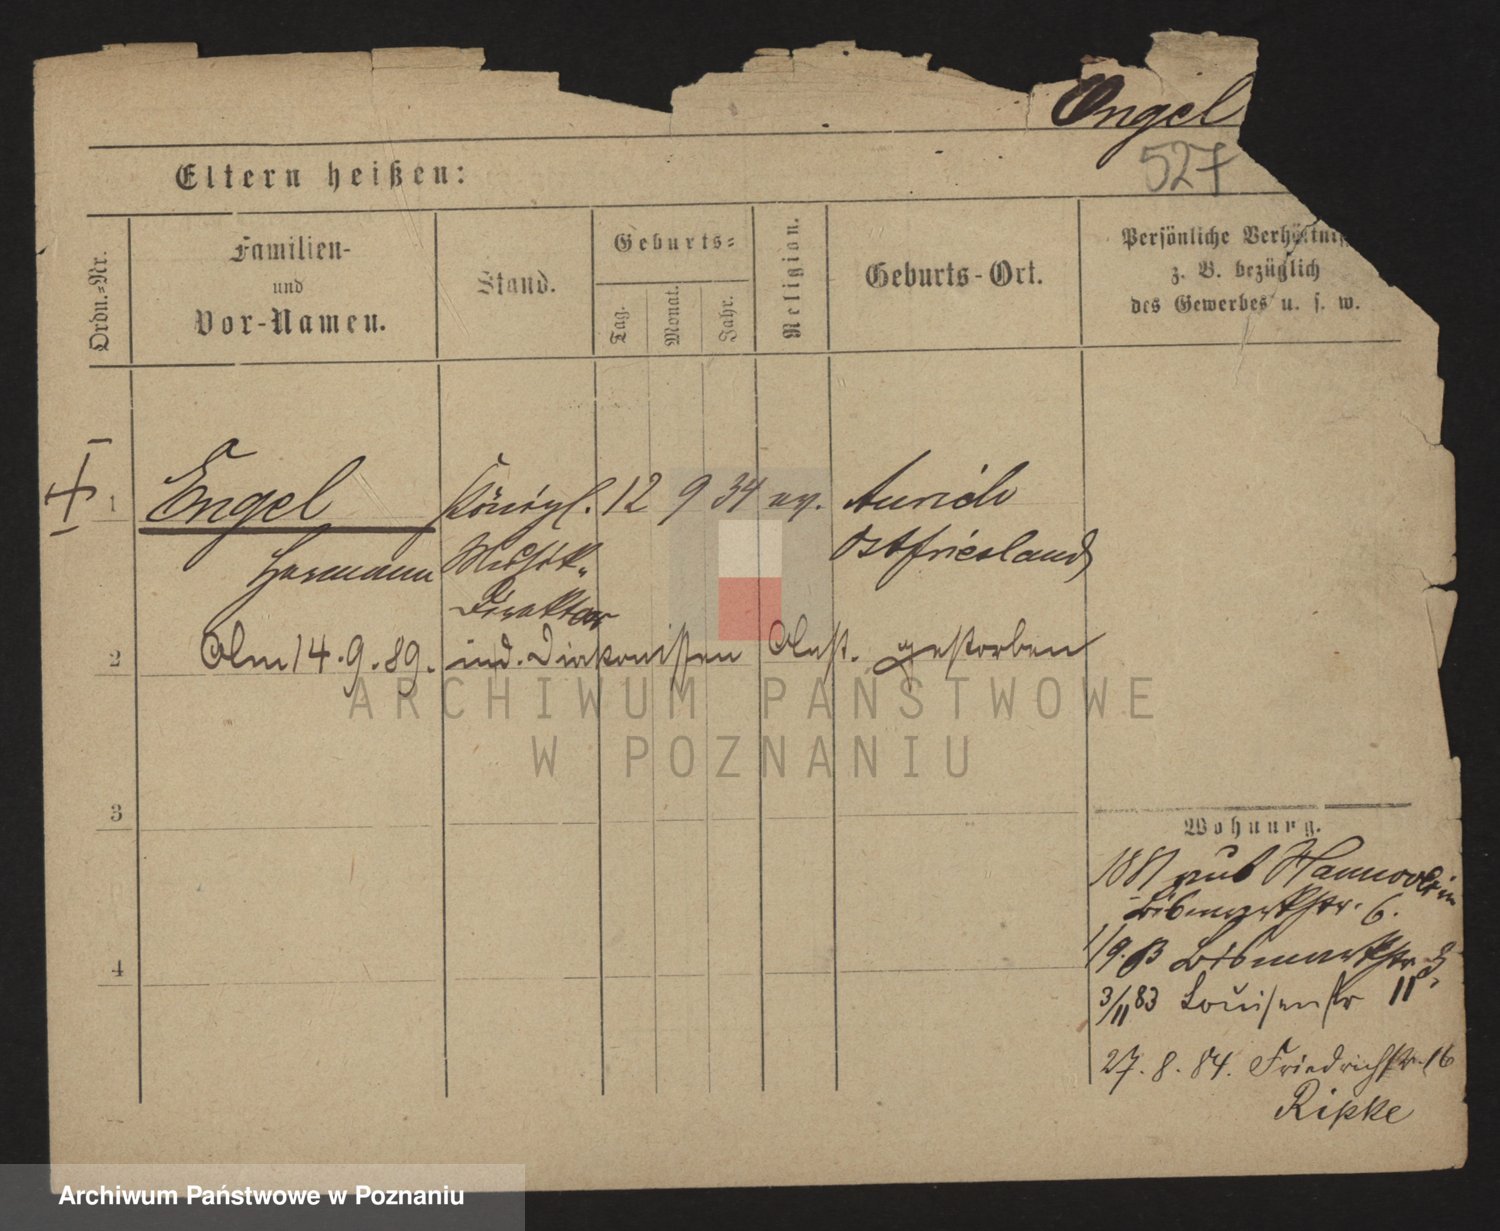 Engel
527
Eltern heißen:
Ordn.-Nr.
Familien-
und
Vor-Namen.
Stand.
Geburts-
Tag.
Monat.
Jahr.
Religion.
Geburts-Ort.
Persönliche Verhältnis
z. B. bezüglich
des Gewerbes u. s. w.
1 Engel Königl. 12 9 34 ev. Aurich
Hermann Musik- Ostfriesland
Direktor
2 Am 14.9.89. ind. Diakonissen Anst. gestorben
ARCHIWUM PAŃSTWOWE
W POZNANIU
3
Wohnung.
1881 aus Hannover in
Bismarkstr. 6.
1/9.83 Bismarkstr
4
3/11 83 Louisenstr 11
27. 8. 84. Friedrichstr. 16
Ripke
Archiwum Państwowe w Poznaniu